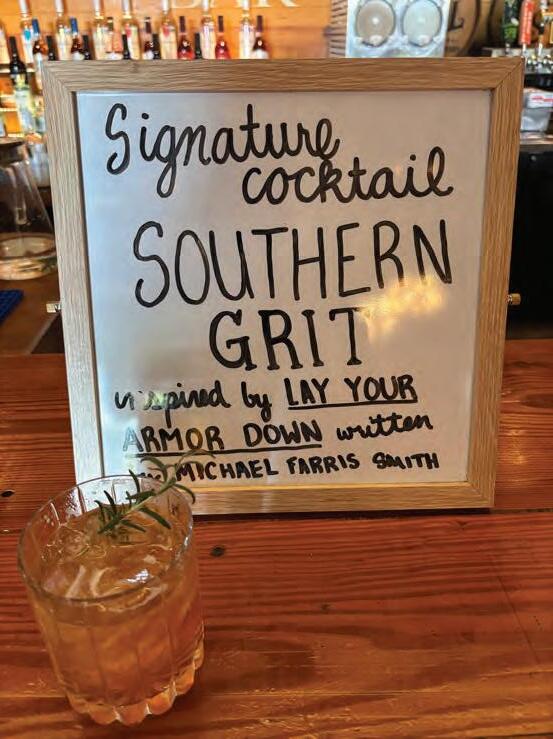 Signature
cocktail
SOUTHERN
GRIT
inspired by LAY YOUR
ARMOR DOWN written
MICHAEL FARRIS SMITH